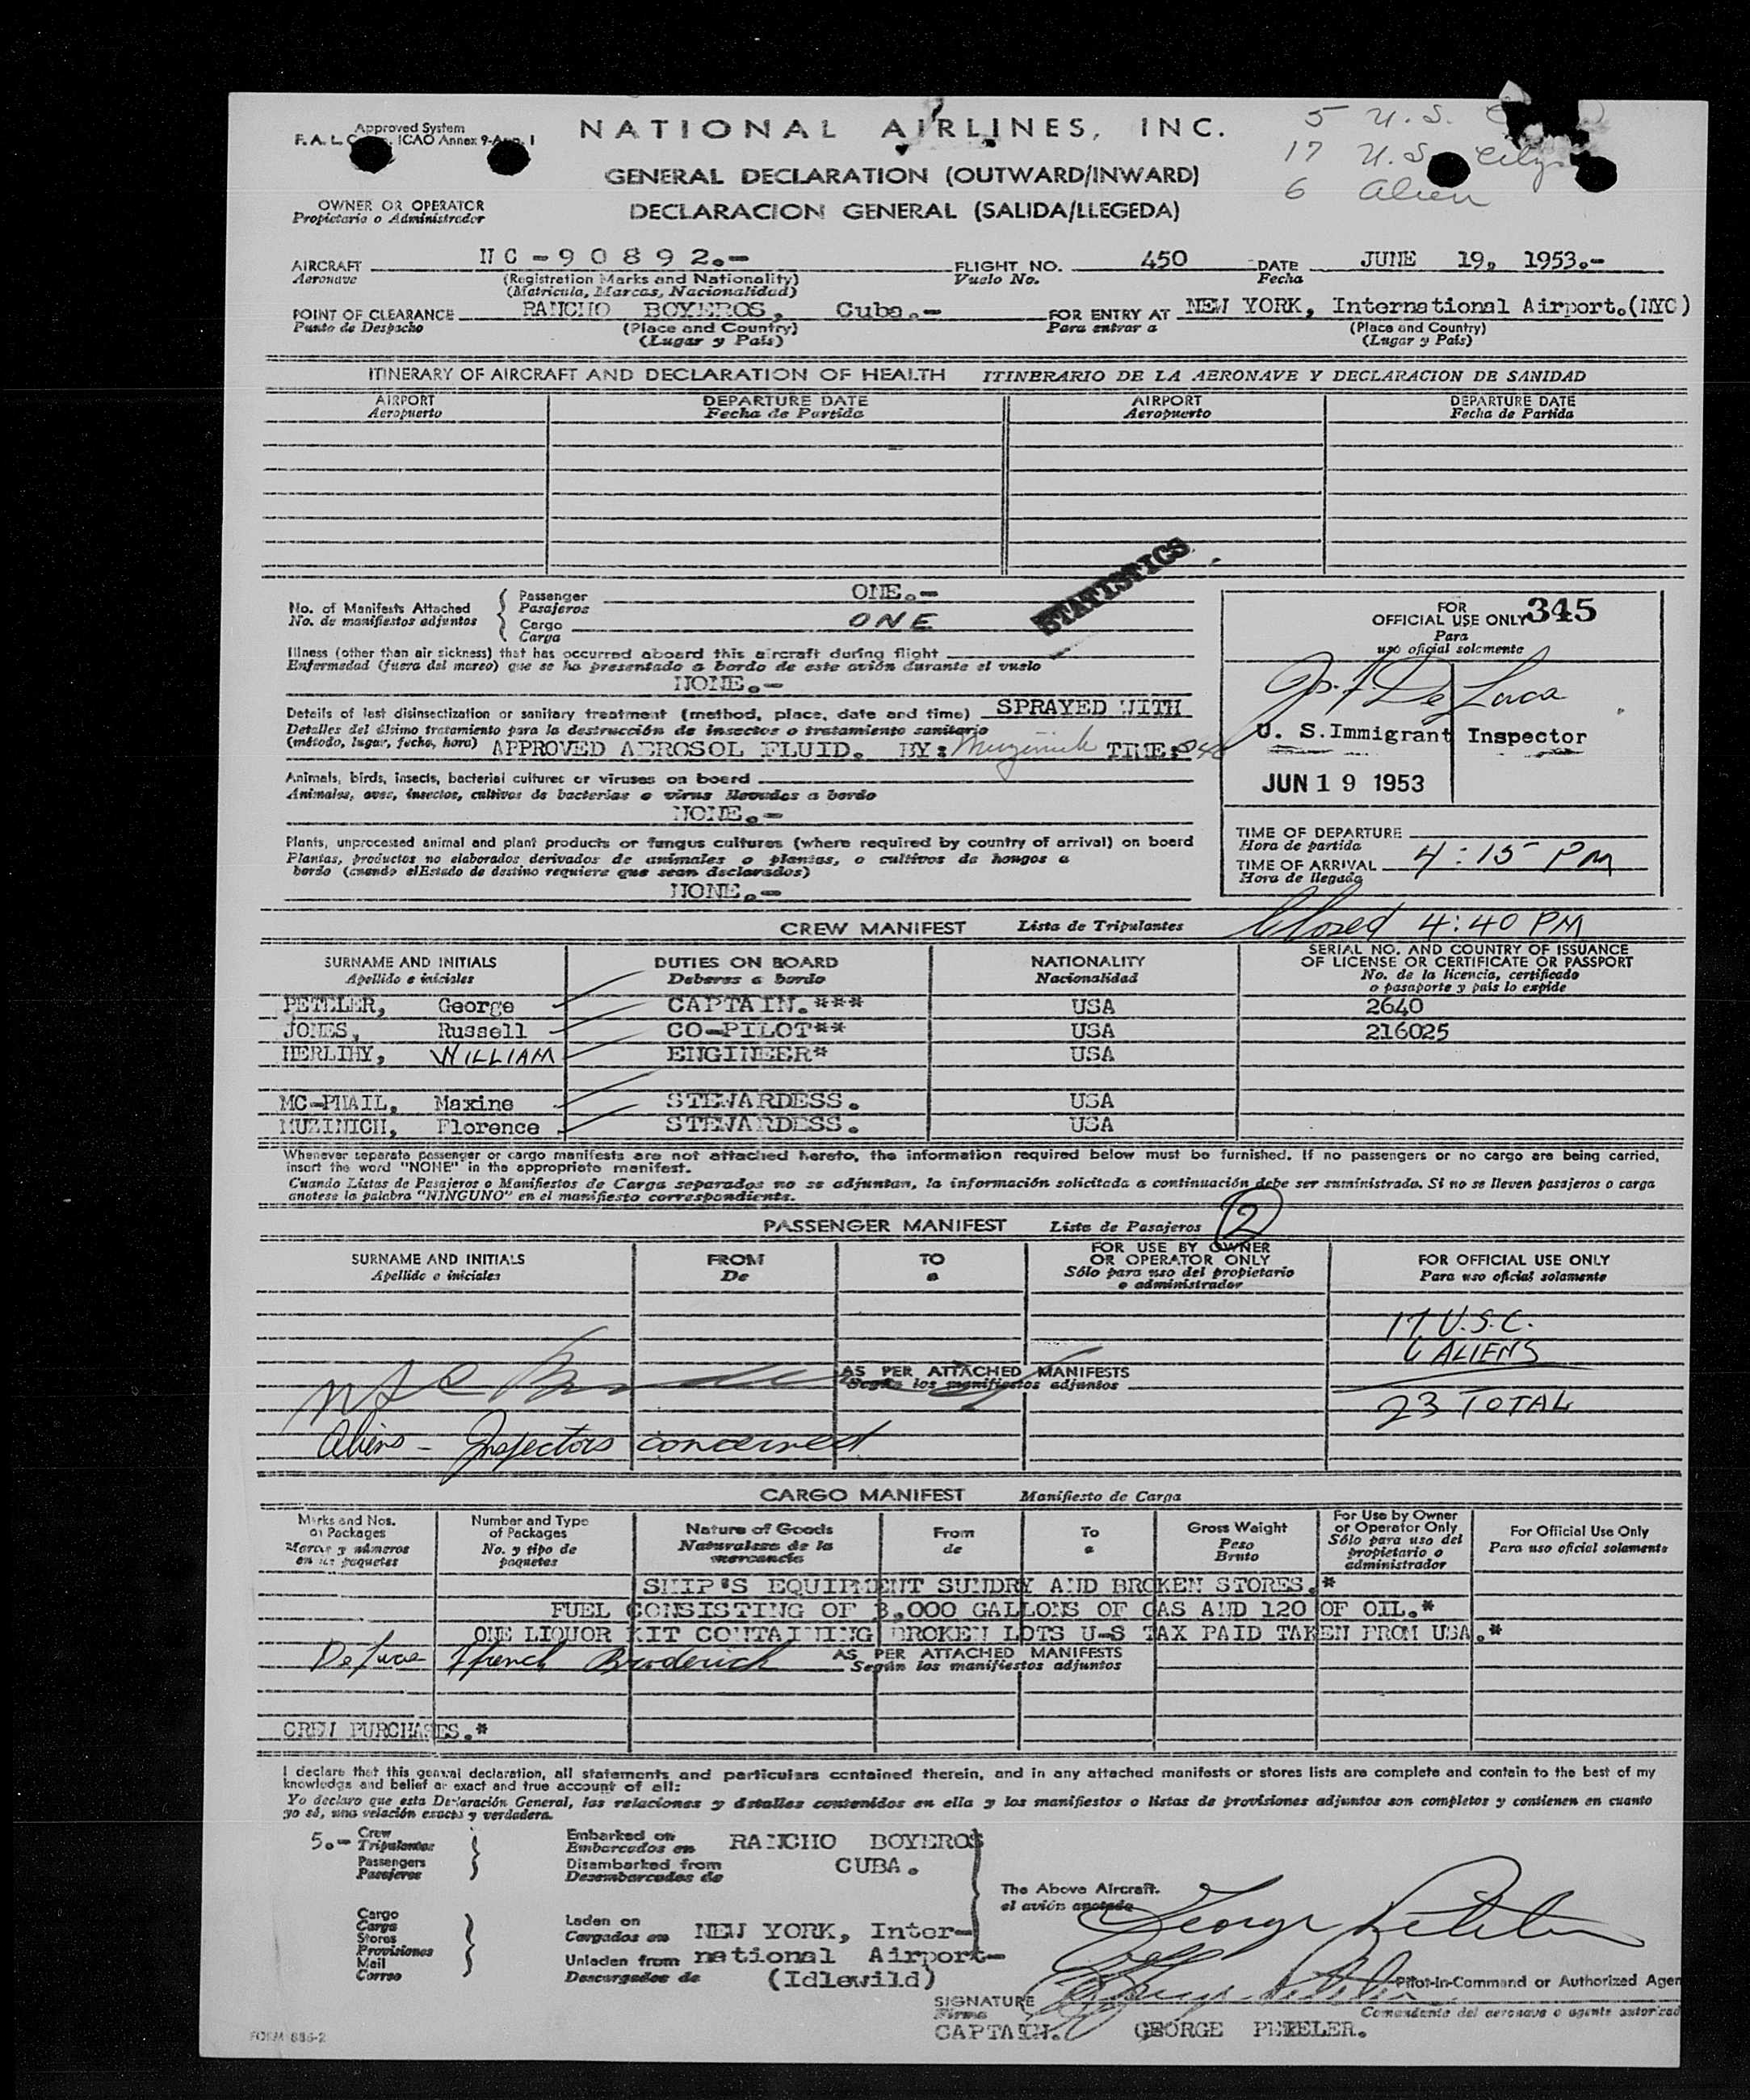 Approved System
F. A. L. ICAO Annex 9-App. 1
NATIONAL AIRLINES, INC.
5 U.S.
17 U.S.
6 Alien
GENERAL DECLARATION (OUTWARD/INWARD)
OWNER OR OPERATOR
Propietario o Administrador
DECLARACION GENERAL (SALIDA/LLEGEDA)
AIRCRAFT NC-90892.- FLIGHT NO. 450 DATE JUNE 19, 1953.-
Aeronave (Registration Marks and Nationality) Vuelo No. Fecha
(Matricula, Marcas, Nacionalidad)
POINT OF CLEARANCE RANCHO BOYEROS, Cuba.- FOR ENTRY AT NEW YORK, International Airport.(NYC)
Punto de Despacho (Place and Country) Para entrar a (Place and Country)
(Lugar y País) (Lugar y País)
ITINERARY OF AIRCRAFT AND DECLARATION OF HEALTH ITINERARIO DE LA AERONAVE Y DECLARACION DE SANIDAD
AIRPORT DEPARTURE DATE AIRPORT DEPARTURE DATE
Aeropuerto Fecha de Partida Aeropuerto Fecha de Partida
STATISTICS
No. of Manifests Attached Passenger ONE.-
No. de manifiestos adjuntos Pasajeros
Cargo ONE
Carga
FOR
OFFICIAL USE ONLY 345
Para
uso oficial solamente
Illness (other than air sickness) that has occurred aboard this aircraft during flight
Enfermedad (fuera del mareo) que se ha presentado a bordo de este avión durante el vuelo
NONE.-
Details of last disinsectization or sanitary treatment (method, place, date and time) SPRAYED WITH
Detalles del último tratamiento para la destrucción de insectos o tratamiento sanitario
(método, lugar, fecha, hora) APPROVED AEROSOL FLUID. BY: Muzinich TIME:
De Luca
U. S. Immigrant Inspector
JUN 19 1953
Animals, birds, insects, bacterial cultures or viruses on board
Animales, aves, insectos, cultivos de bacterias o virus llevados a bordo
NONE.-
Plants, unprocessed animal and plant products or fungus cultures (where required by country of arrival) on board
Plantas, productos no elaborados derivados de animales o plantas, o cultivos de hongos a
bordo (cuando elEstado de destino requiere que sean declarados)
NONE.-
TIME OF DEPARTURE
Hora de partida
TIME OF ARRIVAL 4:15 PM
Hora de llegada
CREW MANIFEST Lista de Tripulantes Closed 4:40 PM
SURNAME AND INITIALS DUTIES ON BOARD NATIONALITY SERIAL NO. AND COUNTRY OF ISSUANCE
OF LICENSE OR CERTIFICATE OR PASSPORT
Apellido e iniciales Deberes a bordo Nacionalidad No. de la licencia, certificado
o pasaporte y país lo expide
PETELER, George CAPTAIN.*** USA 2640
JONES, Russell CO-PILOT** USA 216025
HERLIHY, WILLIAM ENGINEER* USA
MC-PHAIL, Maxine STEWARDESS. USA
MUZINICH, Florence STEWARDESS. USA
Whenever separate passenger or cargo manifests are not attached hereto, the information required below must be furnished. If no passengers or no cargo are being carried,
insert the word "NONE" in the appropriate manifest.
Cuando Listas de Pasajeros o Manifiestos de Carga separados no se adjuntan, la información solicitada a continuación debe ser suministrada. Si no se lleven pasajeros o carga
anotese la palabra "NINGUNO" en el manifiesto correspondiente.
PASSENGER MANIFEST Lista de Pasajeros 2
SURNAME AND INITIALS FROM TO FOR USE BY OWNER
OR OPERATOR ONLY FOR OFFICIAL USE ONLY
Apellido e iniciales De a Sólo para uso del propietario
o administrador Para uso oficial solamente
17 U.S.C.
6 ALIENS
AS PER ATTACHED MANIFESTS
Según los manifiestos adjuntos
23 TOTAL
Aliens - Inspectors concerned
CARGO MANIFEST Manifiesto de Carga
Marks and Nos. on Packages Number and Type of Packages Nature of Goods From To Gross Weight For Use by Owner or Operator Only For Official Use Only
Marcas y números en los paquetes No. y tipo de paquetes Naturaleza de la mercancía de a Peso Bruto Sólo para uso del propietario o administrador Para uso oficial solamente
SHIP'S EQUIPMENT SUNDRY AND BROKEN STORES.*
FUEL CONSISTING OF 3,000 GALLONS OF GAS AND 120 OF OIL.*
ONE LIQUOR KIT CONTAINING BROKEN LOTS U-S TAX PAID TAKEN FROM USA.*
De Luca French Broderick AS PER ATTACHED MANIFESTS
Según los manifiestos adjuntos
CREW PURCHASES.*
I declare that this general declaration, all statements and particulars contained therein, and in any attached manifests or stores lists are complete and contain to the best of my
knowledge and belief an exact and true account of all:
Yo declaro que esta Declaración General, las relaciones y detalles contenidos en ella y los manifiestos o listas de provisiones adjuntos son completos y contienen en cuanto
yo sé, una relación exacta y verdadera.
5.- Crew Embarked on RANCHO BOYEROS
Tripulantes Embarcados en
Passengers Disembarked from CUBA.
Pasajeros Desembarcados de
The Above Aircraft.
el avión anotado
Cargo
Carga Laden on NEW YORK, Inter-
Stores Cargados en
Provisiones Unladen from national Airport-
Mail
Correo Descargados de (Idlewild)
George Peteler
Pilot-in-Command or Authorized Agen
SIGNATURE
Firma Comandante del aeronave o agente autorizad
CAPTAIN. GEORGE PETELER.
FORM 886-2